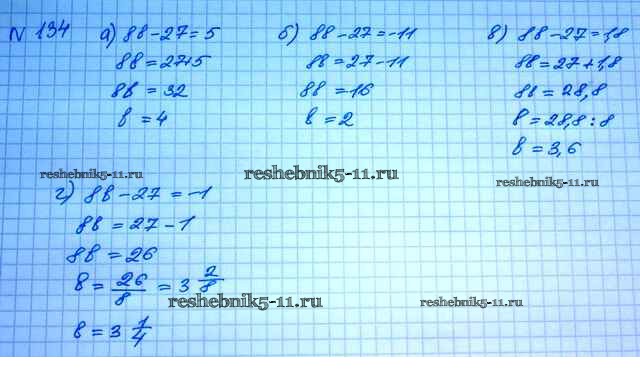 N 134
а) 8в - 27 = 5
8в = 27+5
8в = 32
в = 4
б) 8в - 27 = -11
8в = 27 - 11
8в = 16
в = 2
в) 8в - 27 = 1,8
8в = 27 + 1,8
8в = 28,8
в = 28,8 : 8
в = 3,6
reshebnik5-11.ru
reshebnik5-11.ru
reshebnik5-11.ru
г) 8в - 27 = -1
8в = 27 - 1
8в = 26
в = 26/8 = 3 2/8
в = 3 1/4
reshebnik5-11.ru
reshebnik5-11.ru
reshebnik5-11.ru